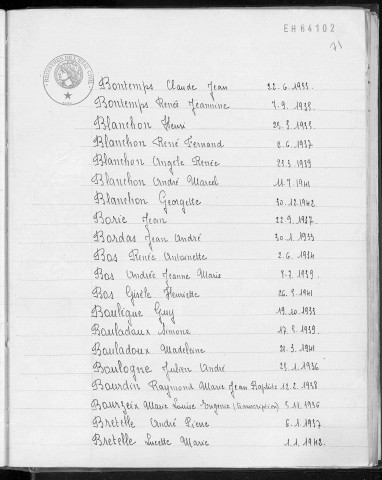 EH64102
Bontemps Claude Jean 22.6.1933
Bontemps Renée Jeannine 7.9.1938
Blanchon Henri 25.3.1933
Blanchon René Fernand 2.6.1937
Blanchon Angèle Renée 23.3.1939
Blanchon André Marcel 11.7.1941
Blanchon Georgette 30.12.1942
Borie Jean 22.9.1937
Bordas Jean André 30.1.1933
Bos Renée Antoinette 2.6.1934
Bos Andrée Jeanne Marie 8.2.1939
Bos Gisèle Henriette 26.8.1941
Bouleque Guy 19.10.1933
Bouladoux Simone 17.8.1939
Bouladoux Madeleine 21.3.1941
Boulogne Julien André 25.1.1936
Bourdin Raymond Marie Jean Baptiste 12.2.1938
Bourzeix Marie Louise Eugénie (transcription) 5.11.1936
Bretelle André Pierre 6.1.1937
Bretelle Lucette Marie 1.1.1942